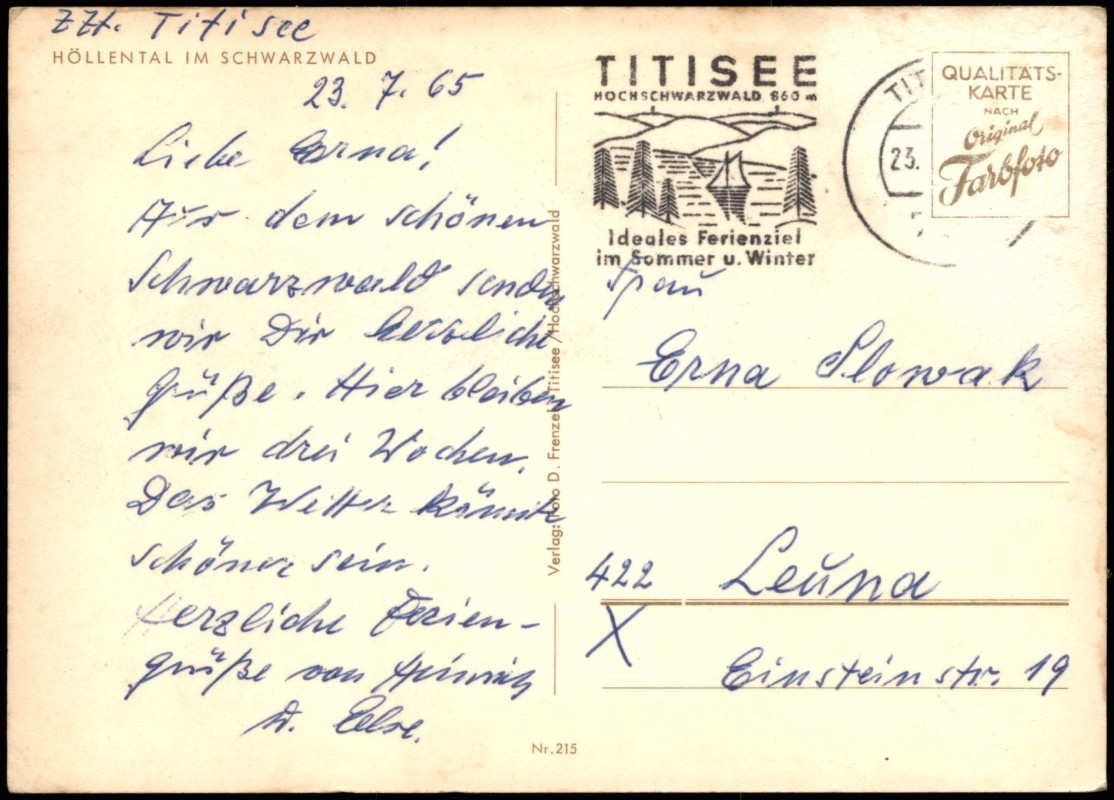 zZt. Titisee
HÖLLENTAL IM SCHWARZWALD
23. 7. 65
Liebe Erna!
Aus dem schönen
Schwarzwald senden
wir Dir herzliche
Grüße. Hier bleiben
wir drei Wochen.
Das Wetter könnte
schöner sein.
Herzliche Ferien-
grüße von Heinrich
u. Else.
Verlag: Foto D. Frenzel Titisee/Hochschwarzwald
Nr. 215
TITISEE
HOCHSCHWARZWALD 860 m
Ideales Ferienziel
im Sommer u. Winter
TIT
23.
QUALITÄTS-
KARTE
NACH
Original
Farbfoto
Frau
Erna Slowak
422 Leuna
X
Einsteinstr. 19